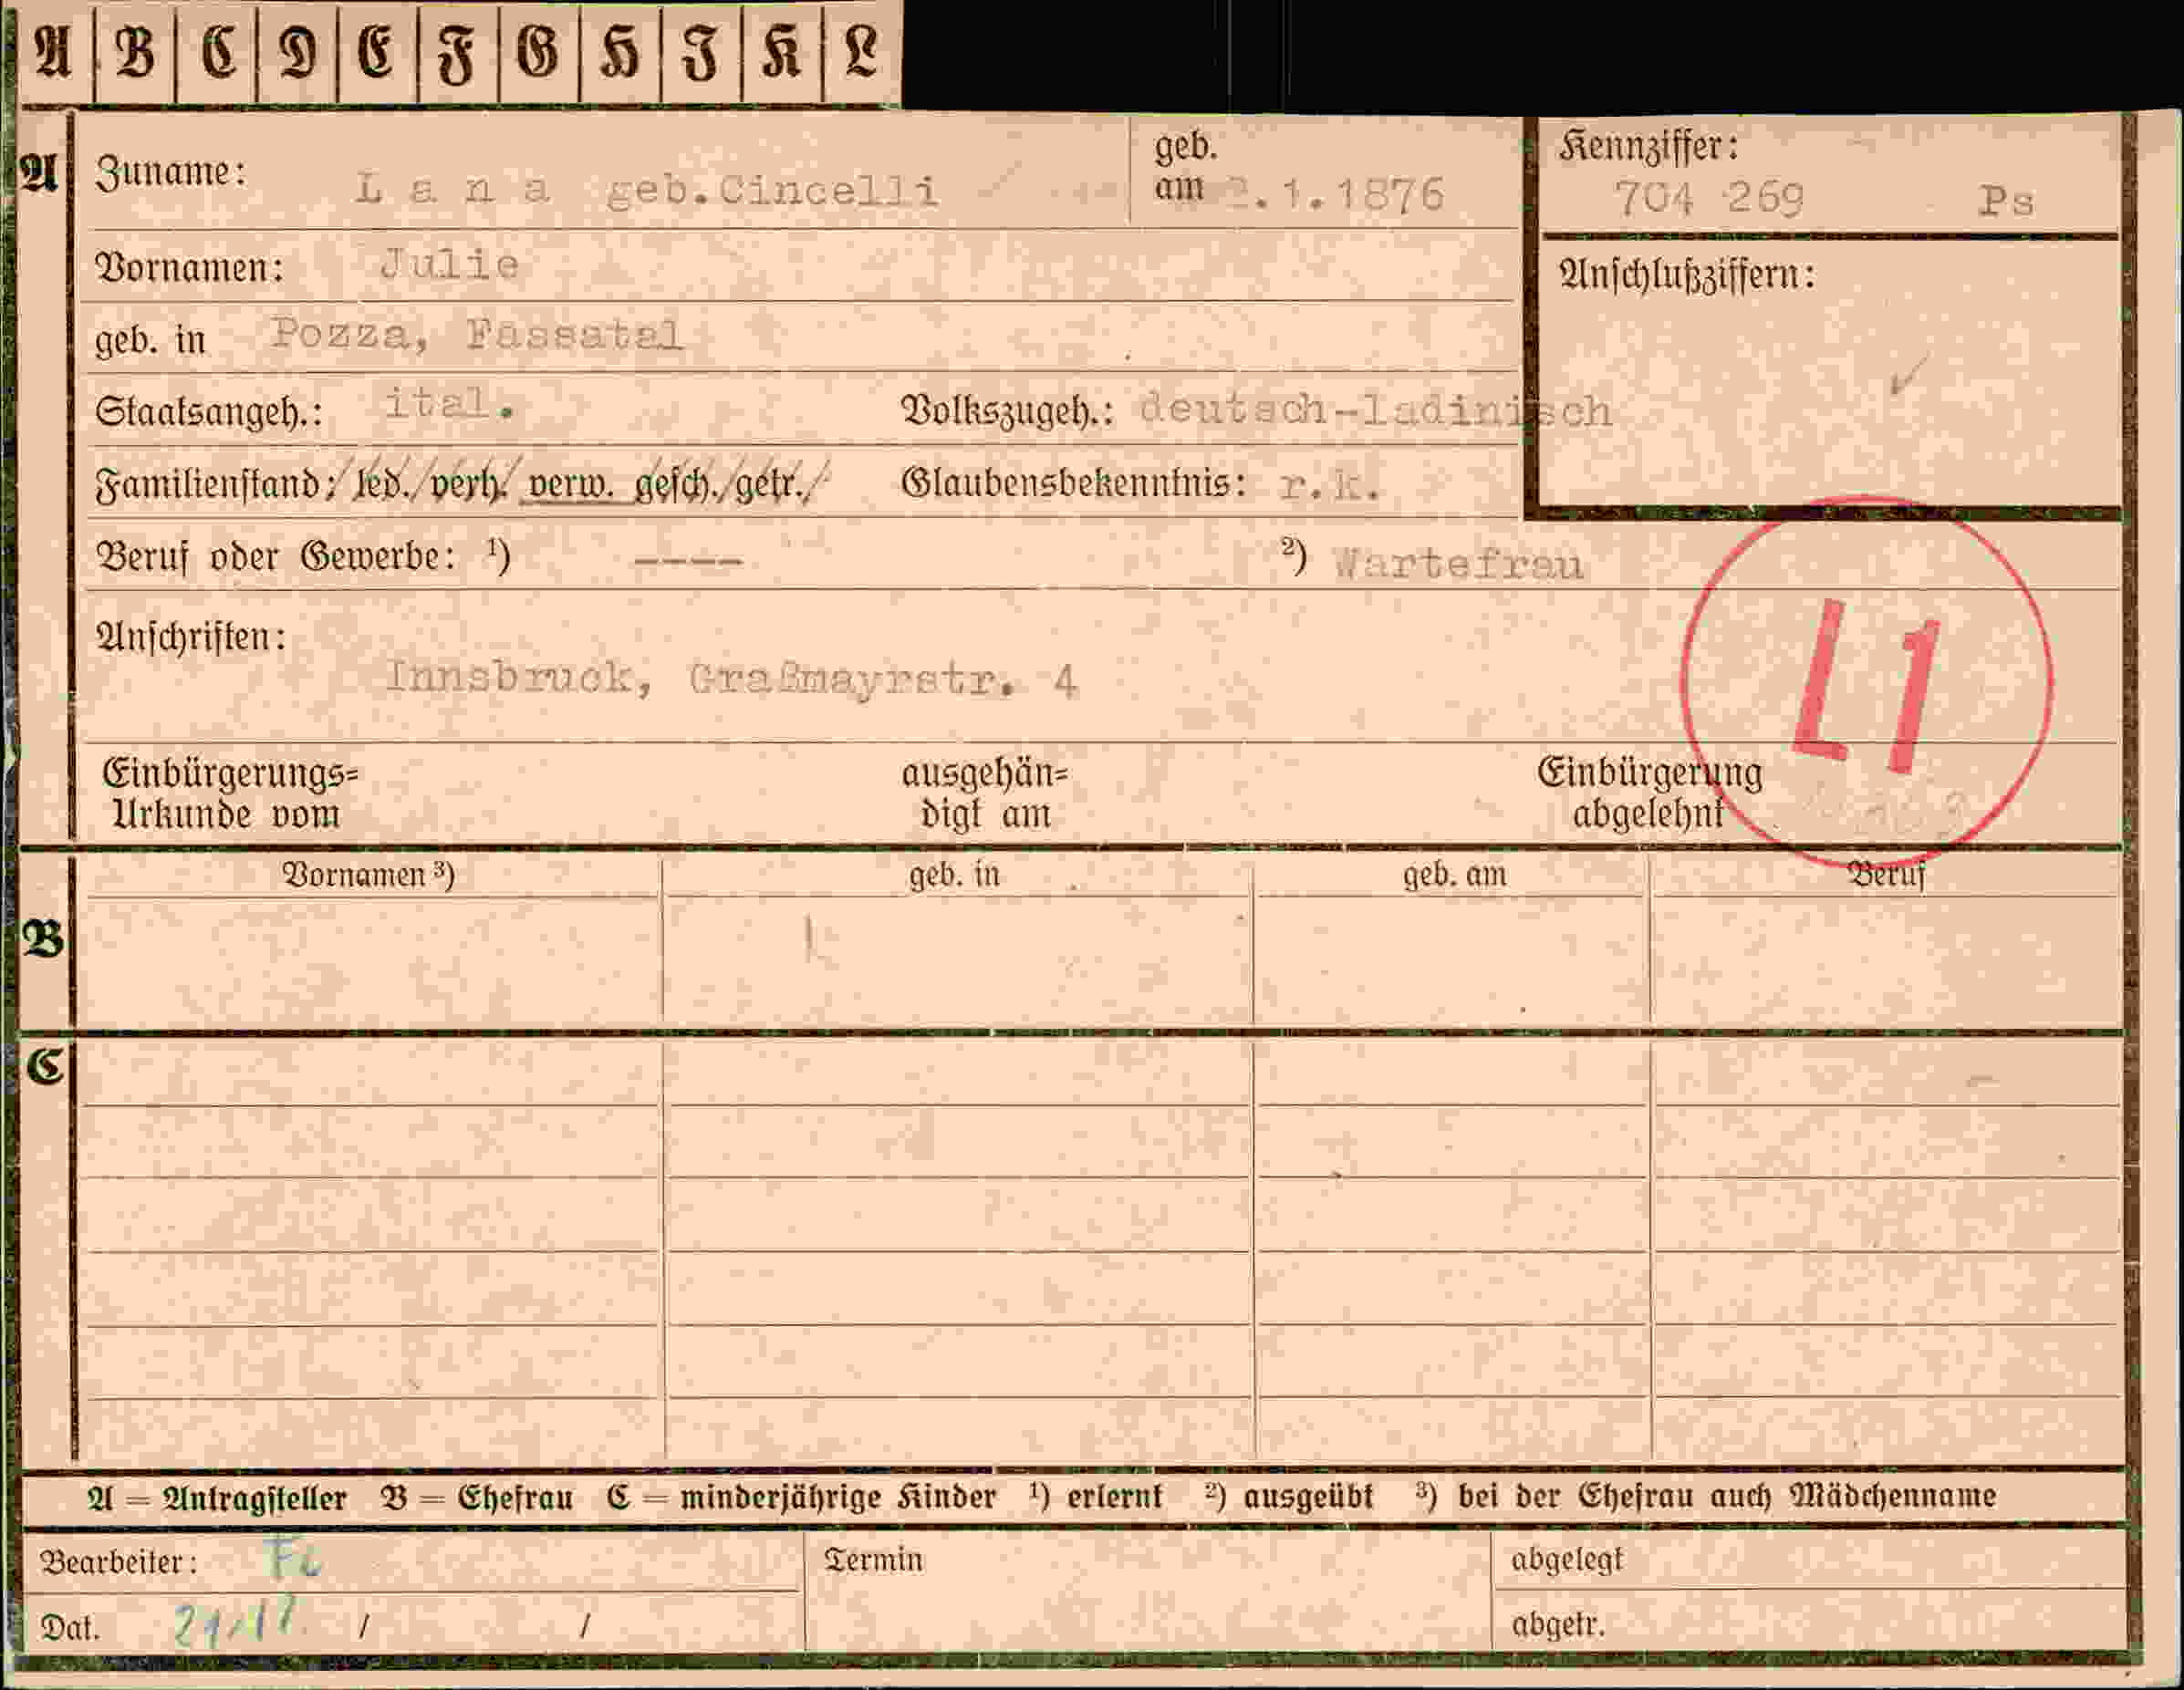 A B C D E F G H I K L
A Zuname: Lana geb.Cincelli geb. am 2.1.1876 Kennziffer: 704 269 Ps
Vornamen: Julie
Anschlußziffern:
geb. in Pozza, Fassatal
Staatsangeh.: ital. Volkszugeh.: deutsch-ladinisch
Familienstand: led./verh./verw. gesch./getr./ Glaubensbekenntnis: r.k.
Beruf oder Gewerbe: ¹) ---- ²) Wartefrau
Anschriften:
Innsbruck, Graßmayrstr. 4
L1
Einbürgerungs= ausgehän= Einbürgerung
Urkunde vom digt am abgelehnt
Vornamen ³) geb. in geb. am Beruf
B
C
A = Antragsteller B = Ehefrau C = minderjährige Kinder ¹) erlernt ²) ausgeübt ³) bei der Ehefrau auch Mädchenname
Bearbeiter: Termin abgelegt
Dat. / / abgetr.